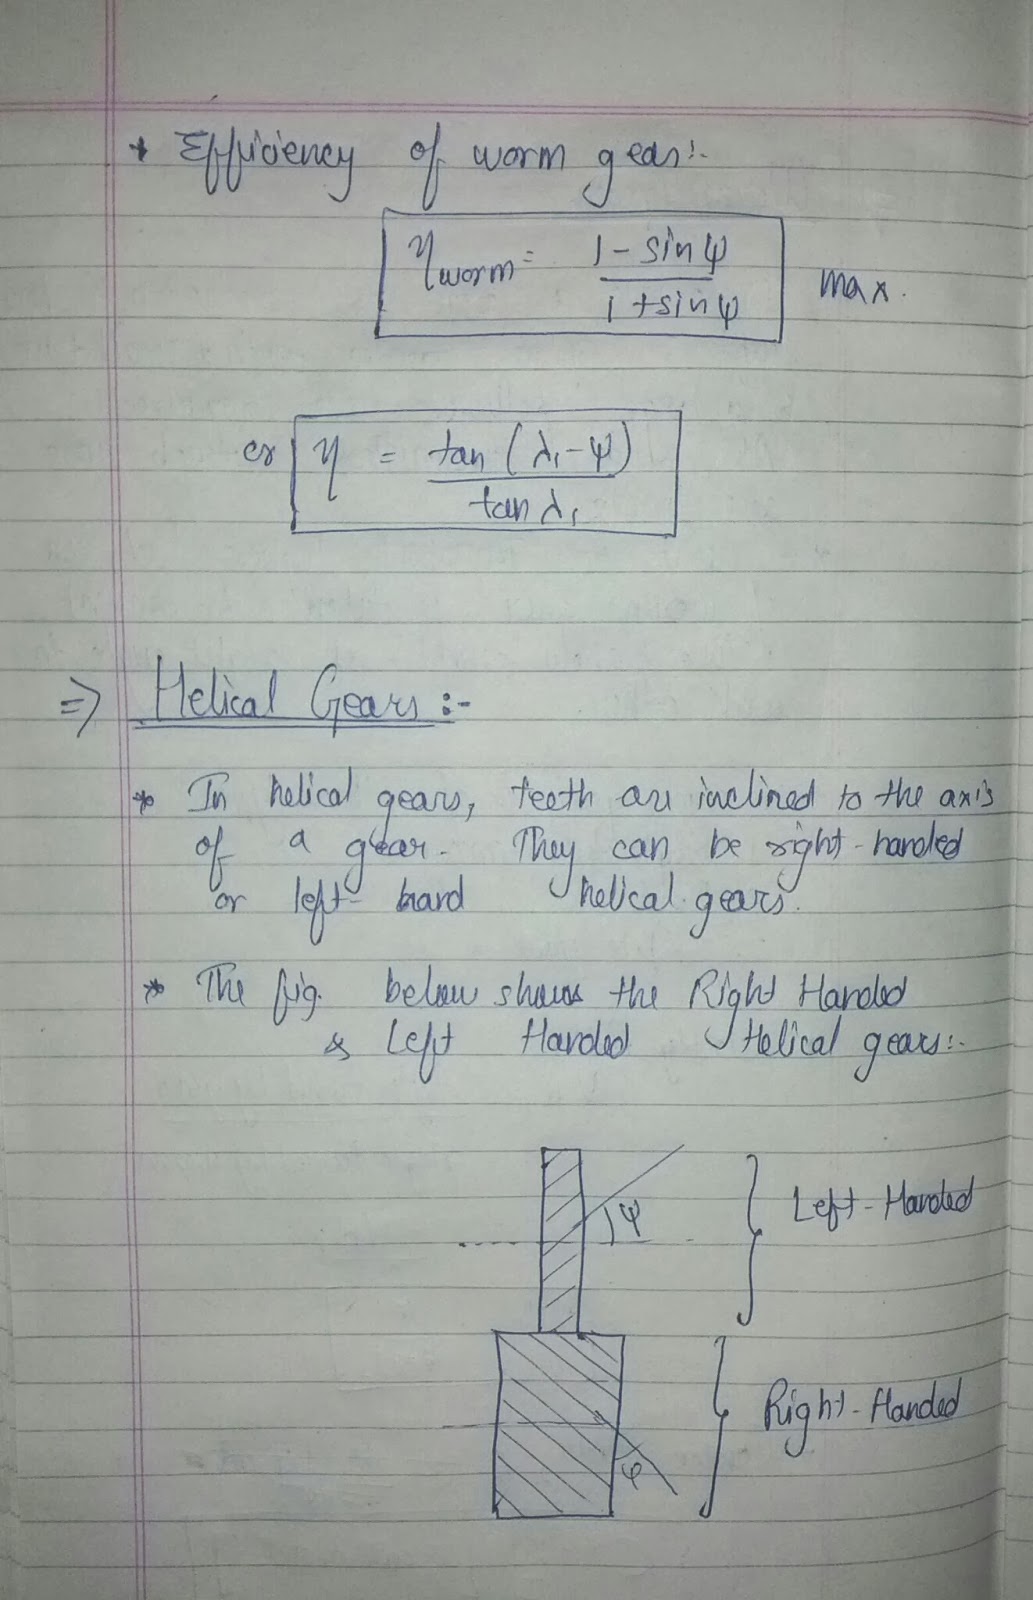 * Efficiency of worm gear:-
η worm = 1 - sin ψ / 1 + sin ψ max.
or η = tan (λ₁ - ψ) / tan λ₁
=> Helical Gears :-
* In helical gears, teeth are inclined to the axis
of a gear. They can be right-handed
or left-hand helical gears.
* The fig. below shows the Right Handed
& Left Handed Helical gears:-
ψ
Left-Handed
Right-Handed
ψ